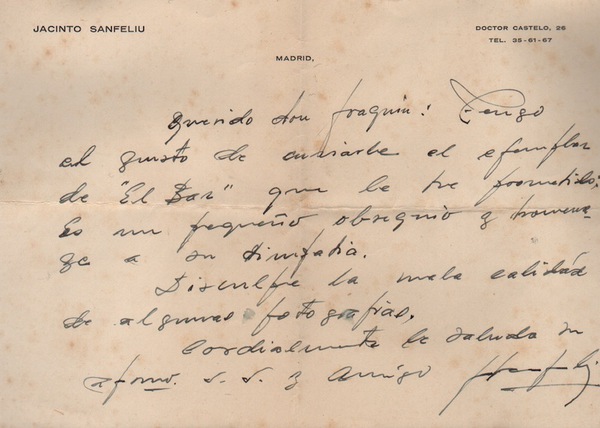 JACINTO SANFELIU
DOCTOR CASTELO, 26
TEL. 35-61-67
MADRID,
Querido don Joaquin: Tengo
el gusto de enviarle el ejemplar
de "El Bar" que le he prometido.
Es un pequeño obsequio y homena-
ge a su simpatia.
Disculpe la mala calidad
de algunas fotografias.
Cordialmente le saluda su
afmo. s. s. y amigo